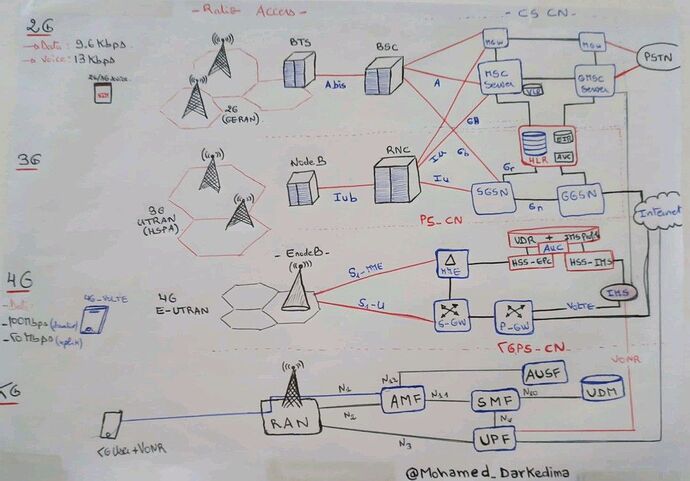 - Radio Access -
- CS CN -
2G
→ Data: 9.6 Kbps
→ Voice: 13 Kbps
2G/3G device
SIM
BTS
BSC
Abis
2G
(GERAN)
A
Gb
MGW
MGW
MSC
Server
VLR
GMSC
Server
PSTN
HLR
EIR
AUC
3G
NodeB
RNC
Iub
Iu
Iu
3G
UTRAN
(HSPA)
Gr
SGSN
Gn
GGSN
Internet
PS_CN
4G
- Data:
- 100Mbps
- 50Mbps (uplink)
4G-VOLTE
4G
E-UTRAN
EnodeB
S1-MME
S1-U
MME
S-GW
P-GW
UDR +
AUC
HSS-EPC
HSS-IMS
IMS
VOLTE
5GPS-CN
VONR
5G
5G User + VONR
RAN
N1
N2
N3
AMF
N12
N11
AUSF
SMF
N10
UDM
N4
UPF
@Mohamed_Darkedima